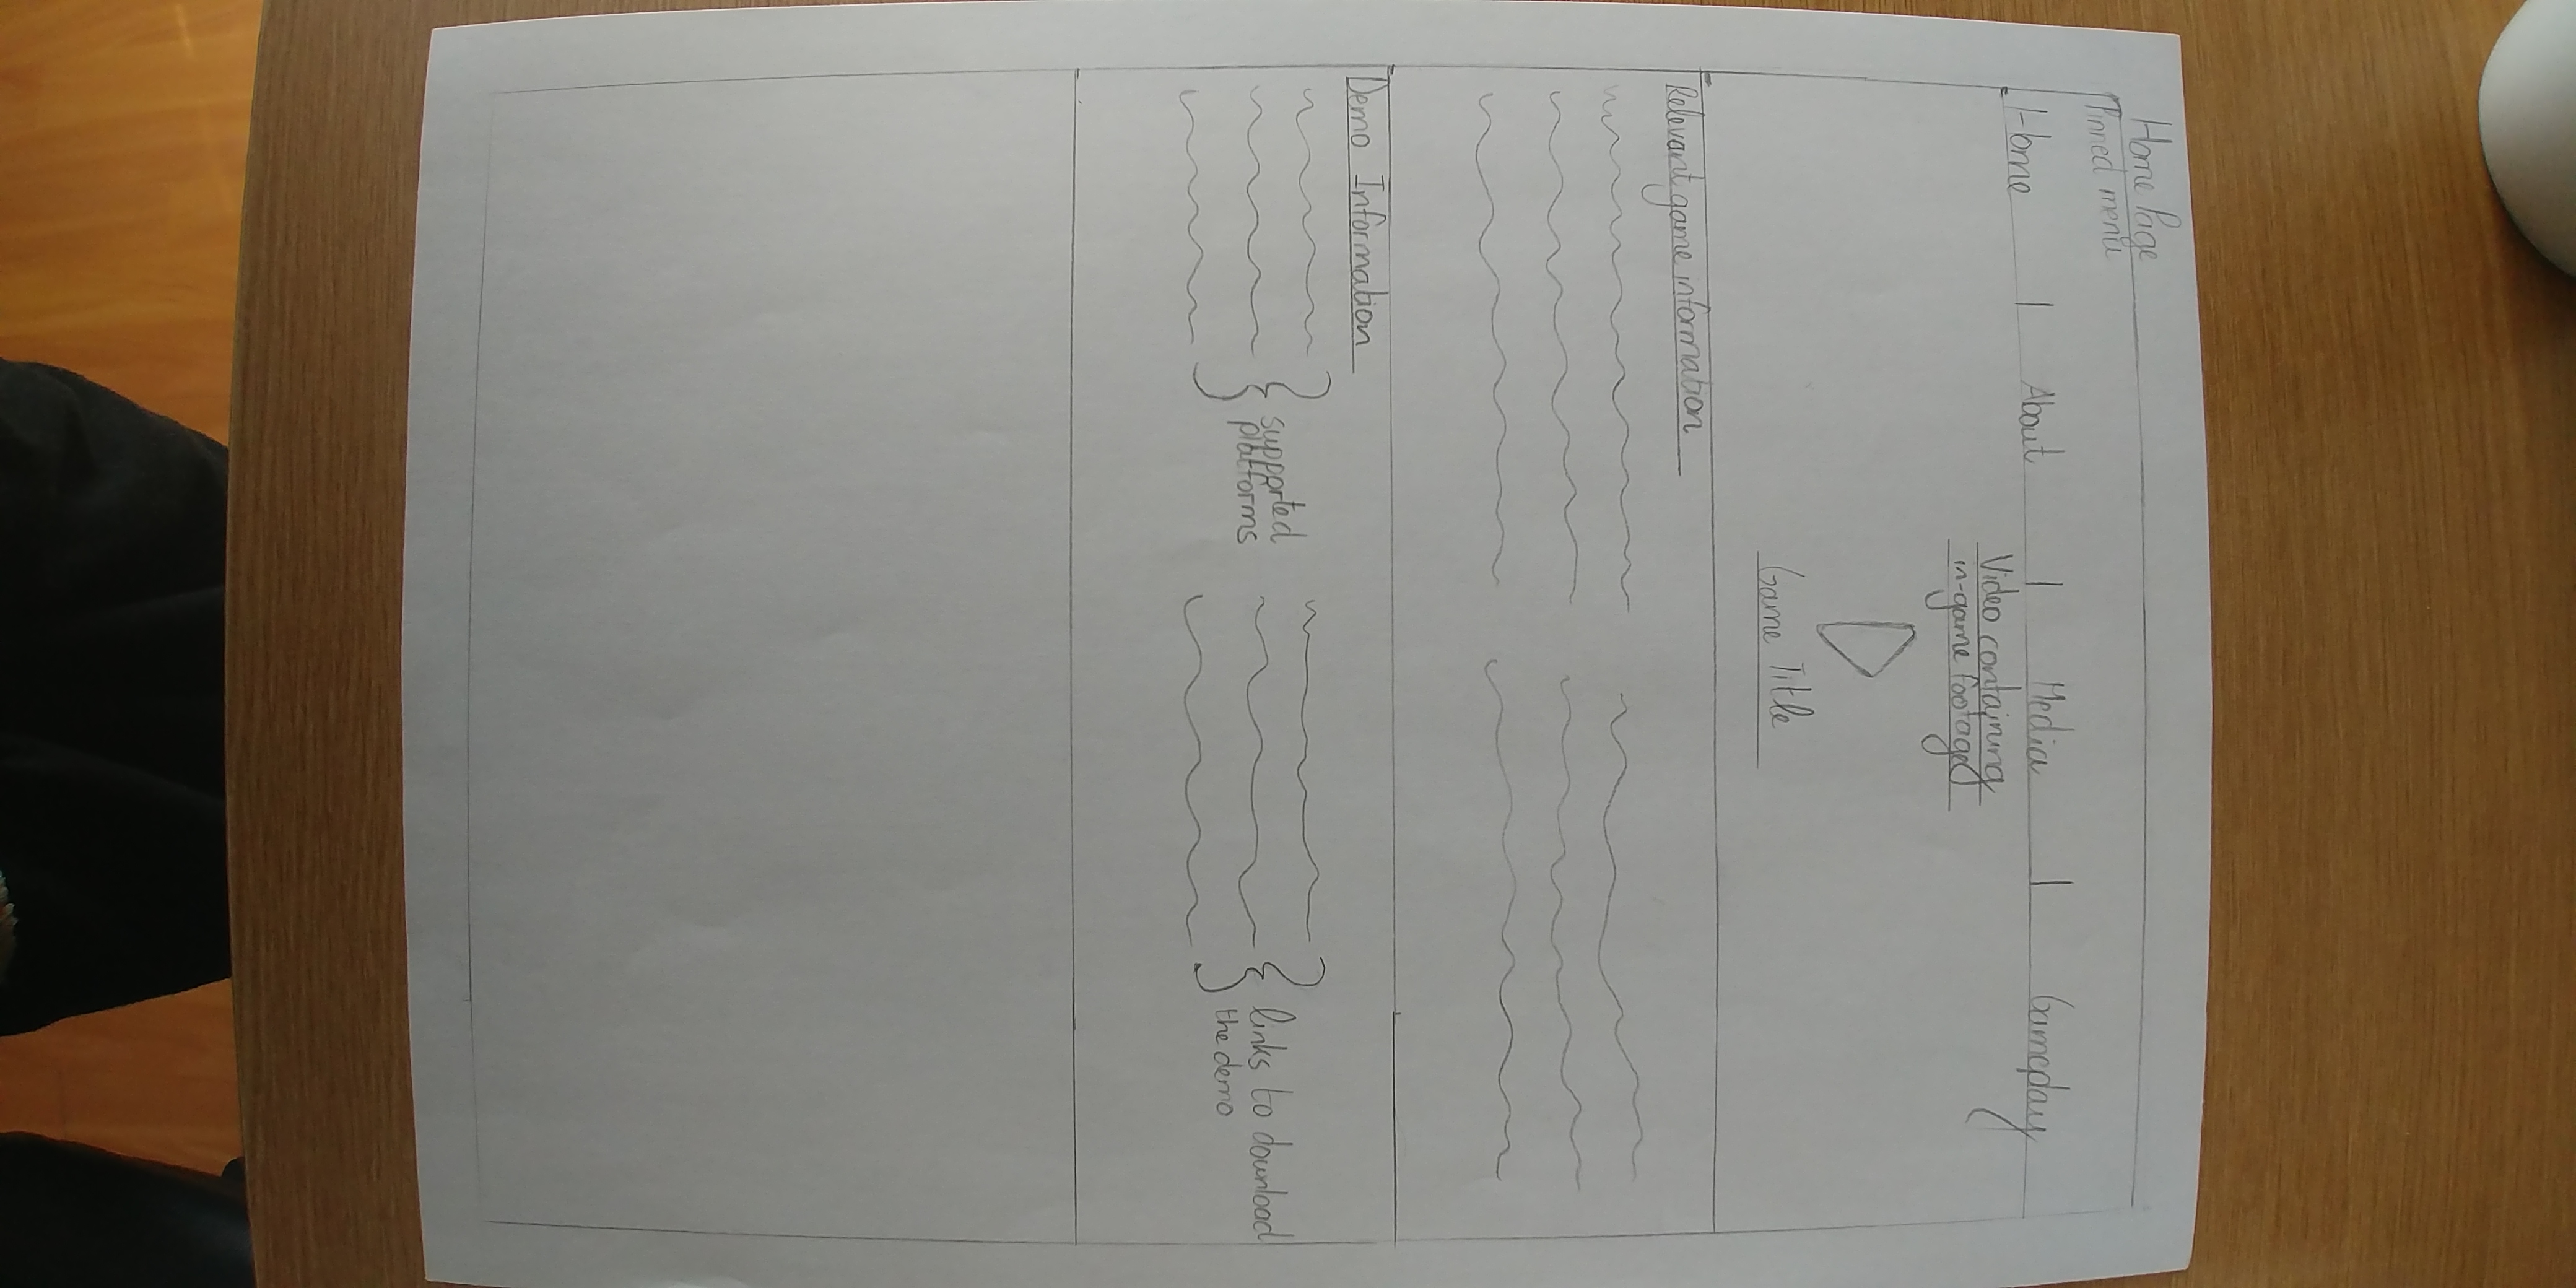 Home Page
Pinned menu
Home | About | Media | Gameplay
Video containing
in-game footage
Game Title
Relevant game information
Demo Information
supported
platforms
links to download
the demo